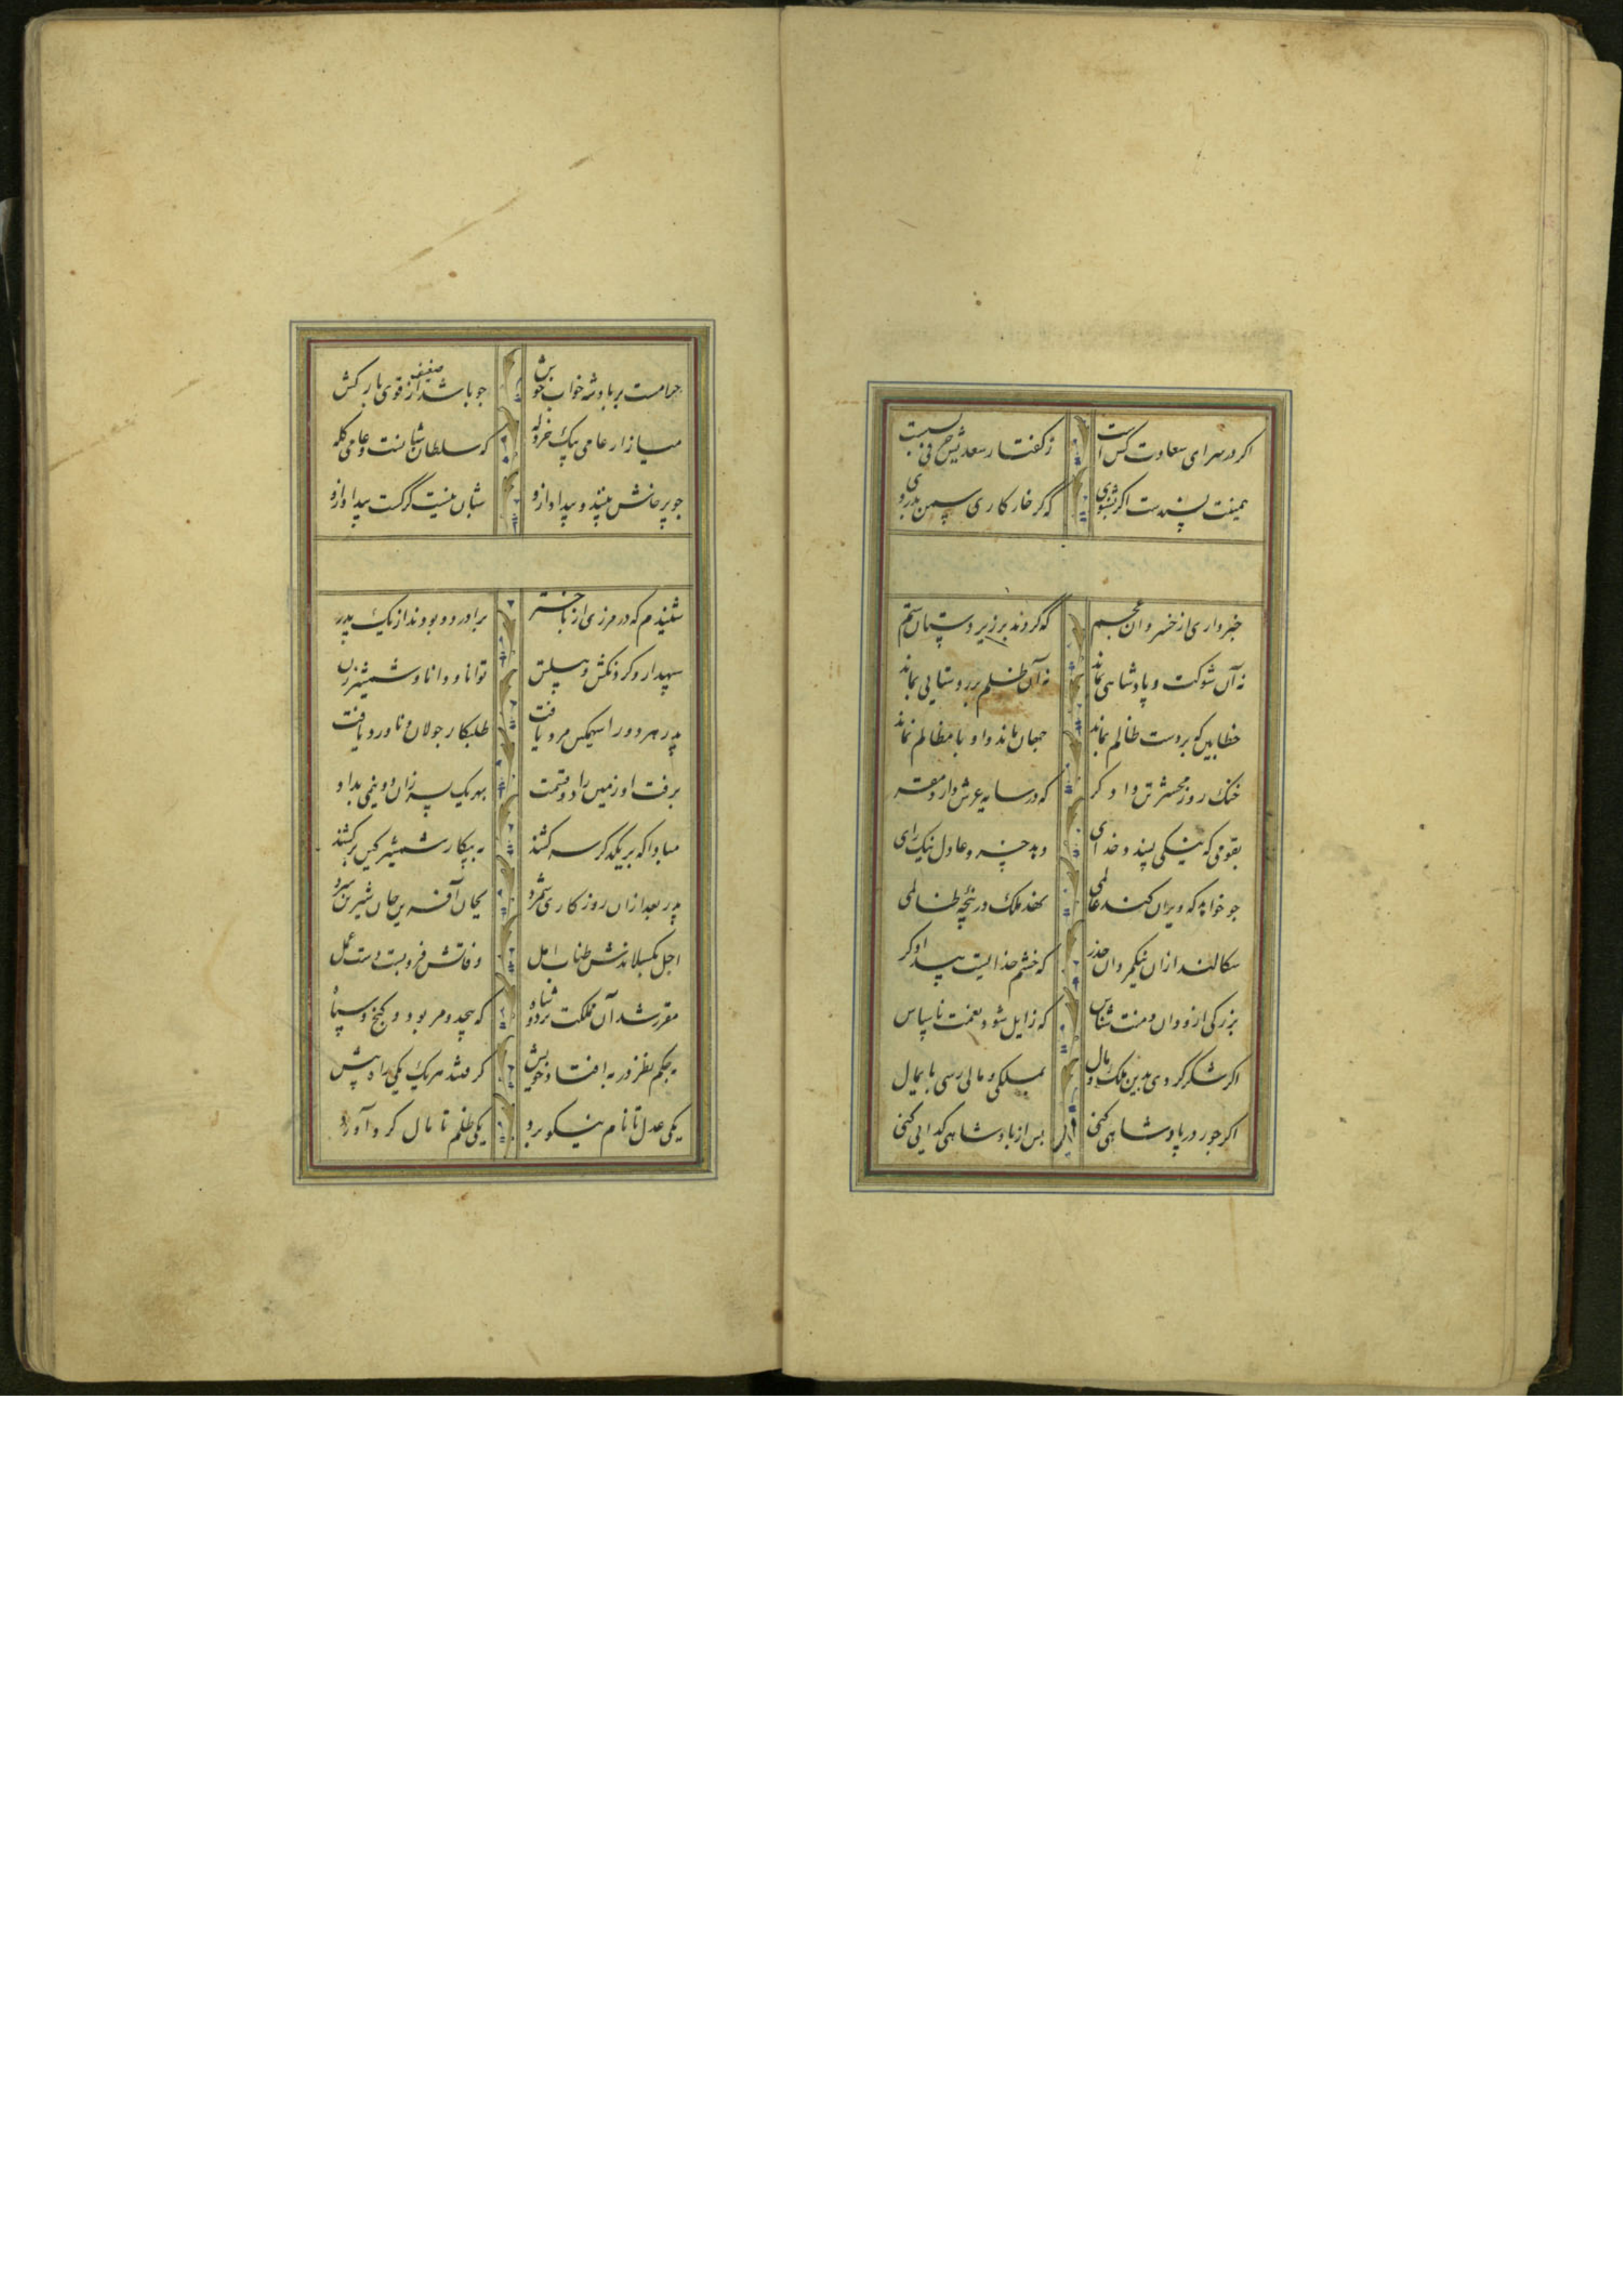 اکر در سرای سعادت کس است ز کفتار سعدیش حرفی بست
همینت پسندست اکر بشنوی که کر خار کاری سمن ندروی
خبر داری از خسروان عجم که کردند بر زیردستان ستم
نه آن شوکت و پادشاهی بماند نه آن ظلم بر روستایی بماند
خطا بین که بر دست ظالم بماند جهان ماند و او با مظالم نماند
خنک روز محشر تن دادکر که در سایه عرش دارد مقر
بقومی که نیکی پسندد خدای دهد خسرو عادل نیک رای
جو خواهد که ویران کند عالمی نهد ملک در پنجه ظالمی
سکالند ازان نیکمردان حذر که خشم خدایست بیدادکر
بزرکی ازو دان و منت شناس که زایل شود نعمت ناسپاس
اکر شکر کردی بدین ملک و مال بملکی و مالی رسی بی‌زوال
اکر جور در پادشاهی کنی بس از پادشاهی کدایی کنی
حرامست بر پادشه خواب خوش جو باشد ضعیف از قوی بارکش
میازار عامی بیک خردله که سلطان شبانست و عامی کله
جو پرخاش بینند و بیداد ازو شبان نیست کرکست بیداد ازو
شنیدم که در مرزی از باختر برادر دو بودند از یک پدر
سپهدار و کردنکش و پیلتن توانا و دانا و شمشیرزن
پدر هر دو را سهمکین مرد یافت طلبکار جولان و ناورد یافت
برفت او زمین را دو قسمت نهاد بهر یک پسر زان دو نیمی بداد
مبادا که بر یکدکر سر کشند به پیکار شمشیر کین برکشند
پدر بعد ازان روزکاری شمرد بجان آفرین جان شیرین سپرد
اجل بکسلاندش طناب امل وفاتش فرو بست دست عمل
مقرر شد آن مملکت بر دو شاه که بیحد و مر بود و کنج و سپاه
به حکم نظر در به افتاد خویش کرفتند هر یک یکی راه پیش
یکی عدل تا نام نیکو برد یکی ظلم تا مال کرد آورد